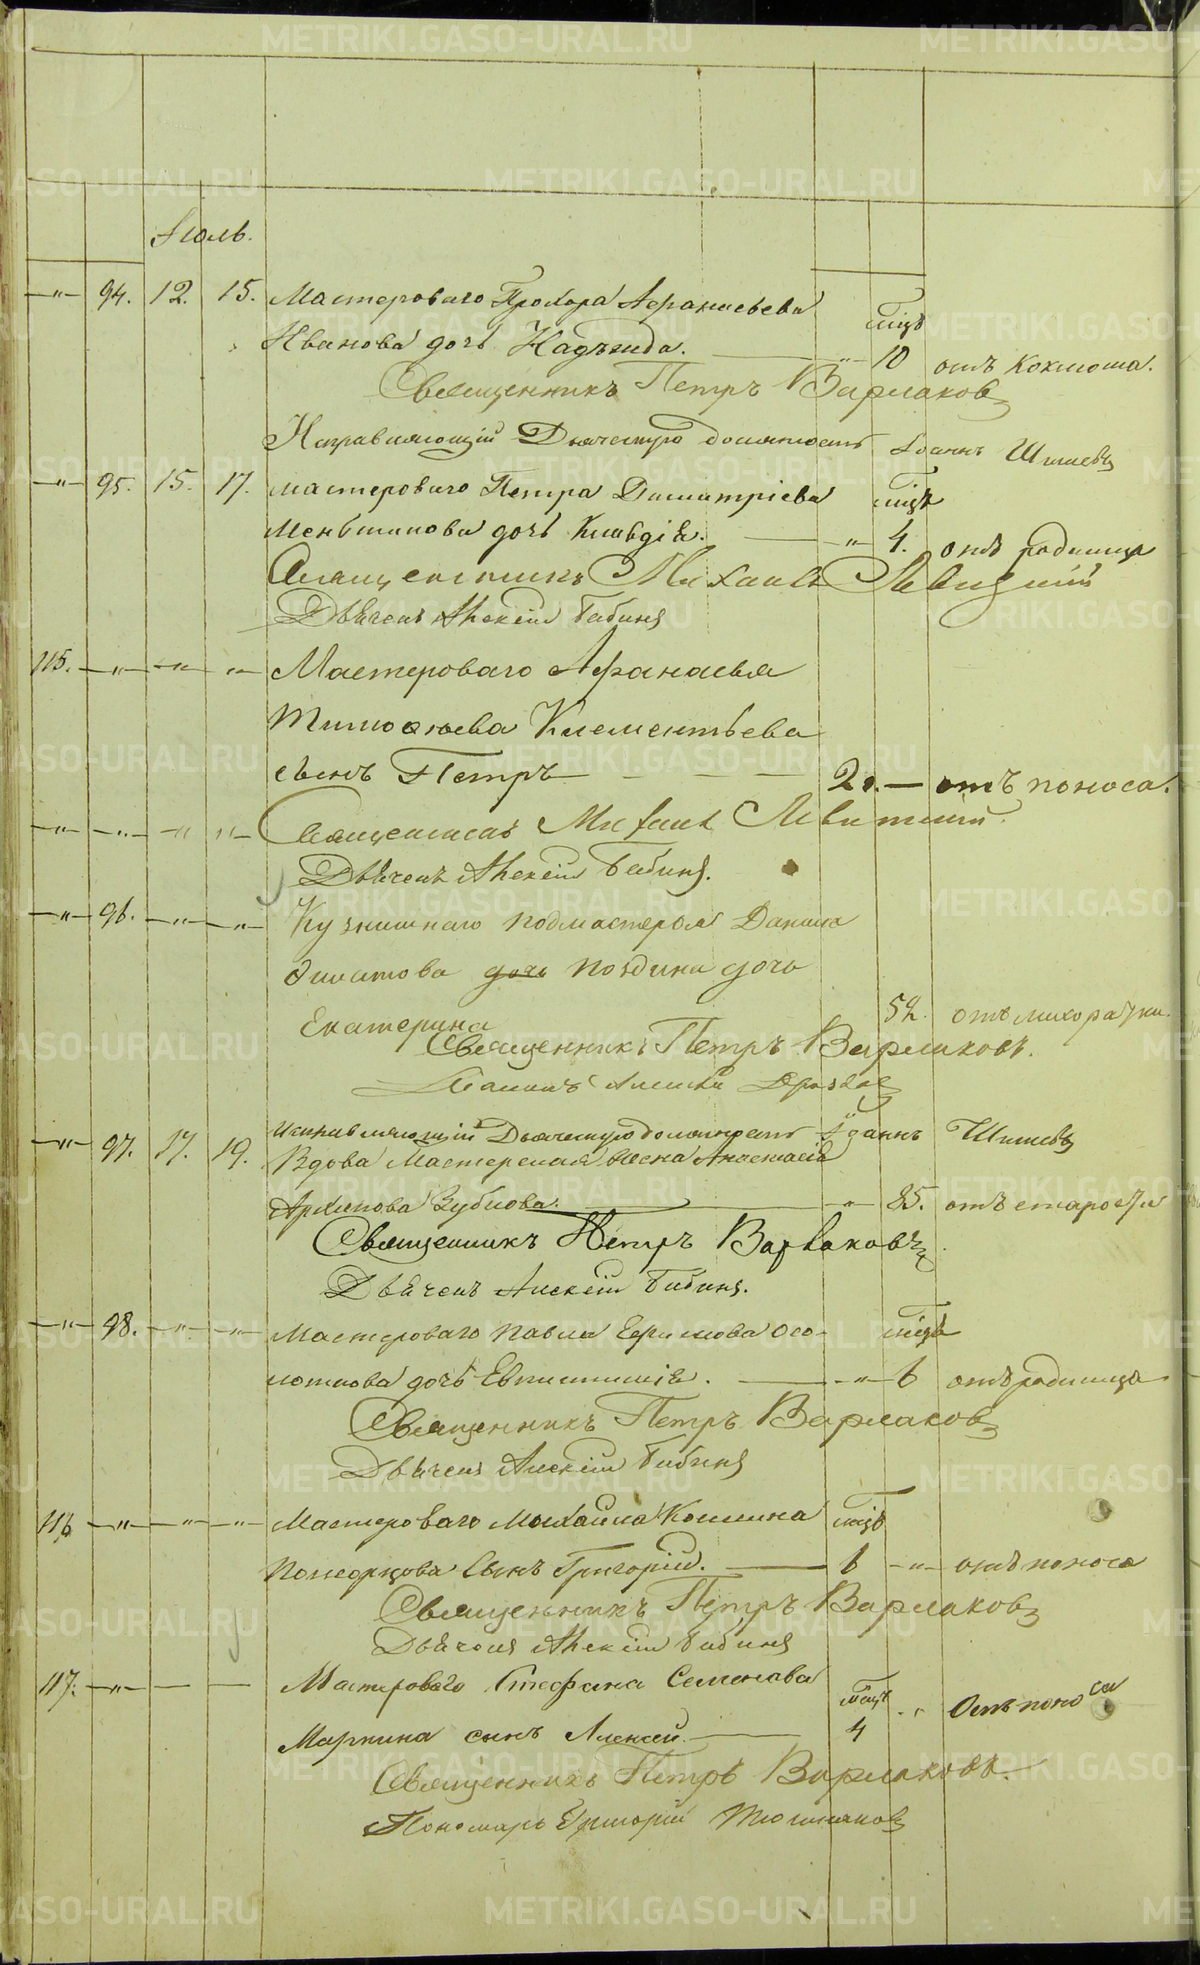 Іюль.
94. 12. 15. Мастероваго Прохора Афанасьева мѣцъ
Иванова дочь Надѣжда. 10 отъ коклюша.
Священникъ Петръ Варлаковъ
Исправляющій Дьяческую должность Іоаннъ Шишевъ
95. 15. 17. мастероваго Петра Димитріева мѣцъ
Меньшикова дочь Клавдія. 4. отъ родимца
Священникъ Михаилъ Левицкій
Дьячекъ Алексѣй Бабинъ
115. Мастероваго Афанасья
Тимоѳеева Клементьева
сынъ Петръ 2 г. отъ поноса.
Священникъ Михаилъ Левитскій.
Дьячекъ Алексѣй Бабинъ.
96. Кузнишнаго подмастерья Данила
дочь дочь
Екатерина 52. отъ лихорадки.
Священникъ Петръ Варлаковъ.
97. 17. 19. Исправляющій Дьяческую должность Іоаннъ Шишевъ
Вдова Мастерская жена Анастасія
Архипова Зубкова. 85. отъ старости
Священникъ Петръ Варлаковъ
Дьячекъ Алексѣй Бабинъ.
98. Мастероваго Павла Ефимова Осо- мѣцъ
лоткова дочь Евпистимія. 6 отъ родимца
Священникъ Петръ Варлаковъ
Дьячекъ Алексѣй Бабинъ
116 Мастероваго Михаила Козмина мѣцъ
Поморцова Сынъ Григорій. 6 отъ поноса
Священникъ Петръ Варлаковъ
Дьячекъ Алексѣй Бабинъ
117. Мастероваго Стефана Семенова мѣцъ Отъ поноса
Маркина сынъ Алексей 4
Священникъ Петръ Варлаковъ.
Пономарь Григорій
METRIKI.GASO-URAL.RU